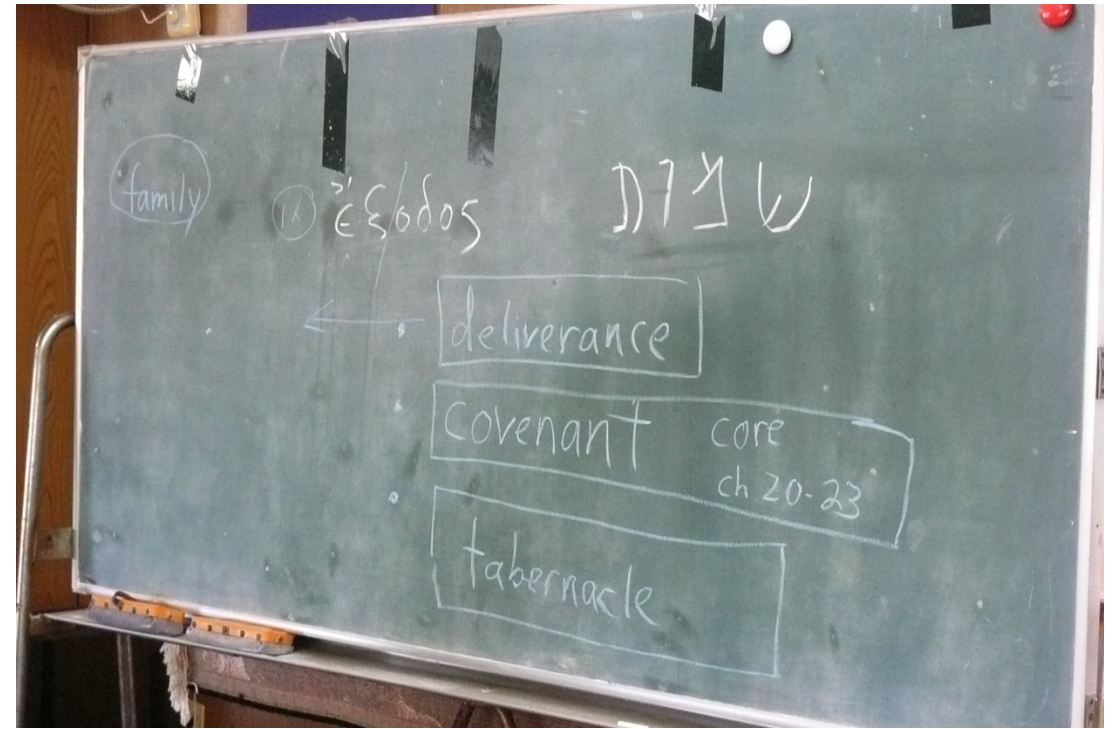 family
ἔξ/οδος שמות
deliverance
covenant core
ch 20-23
tabernacle